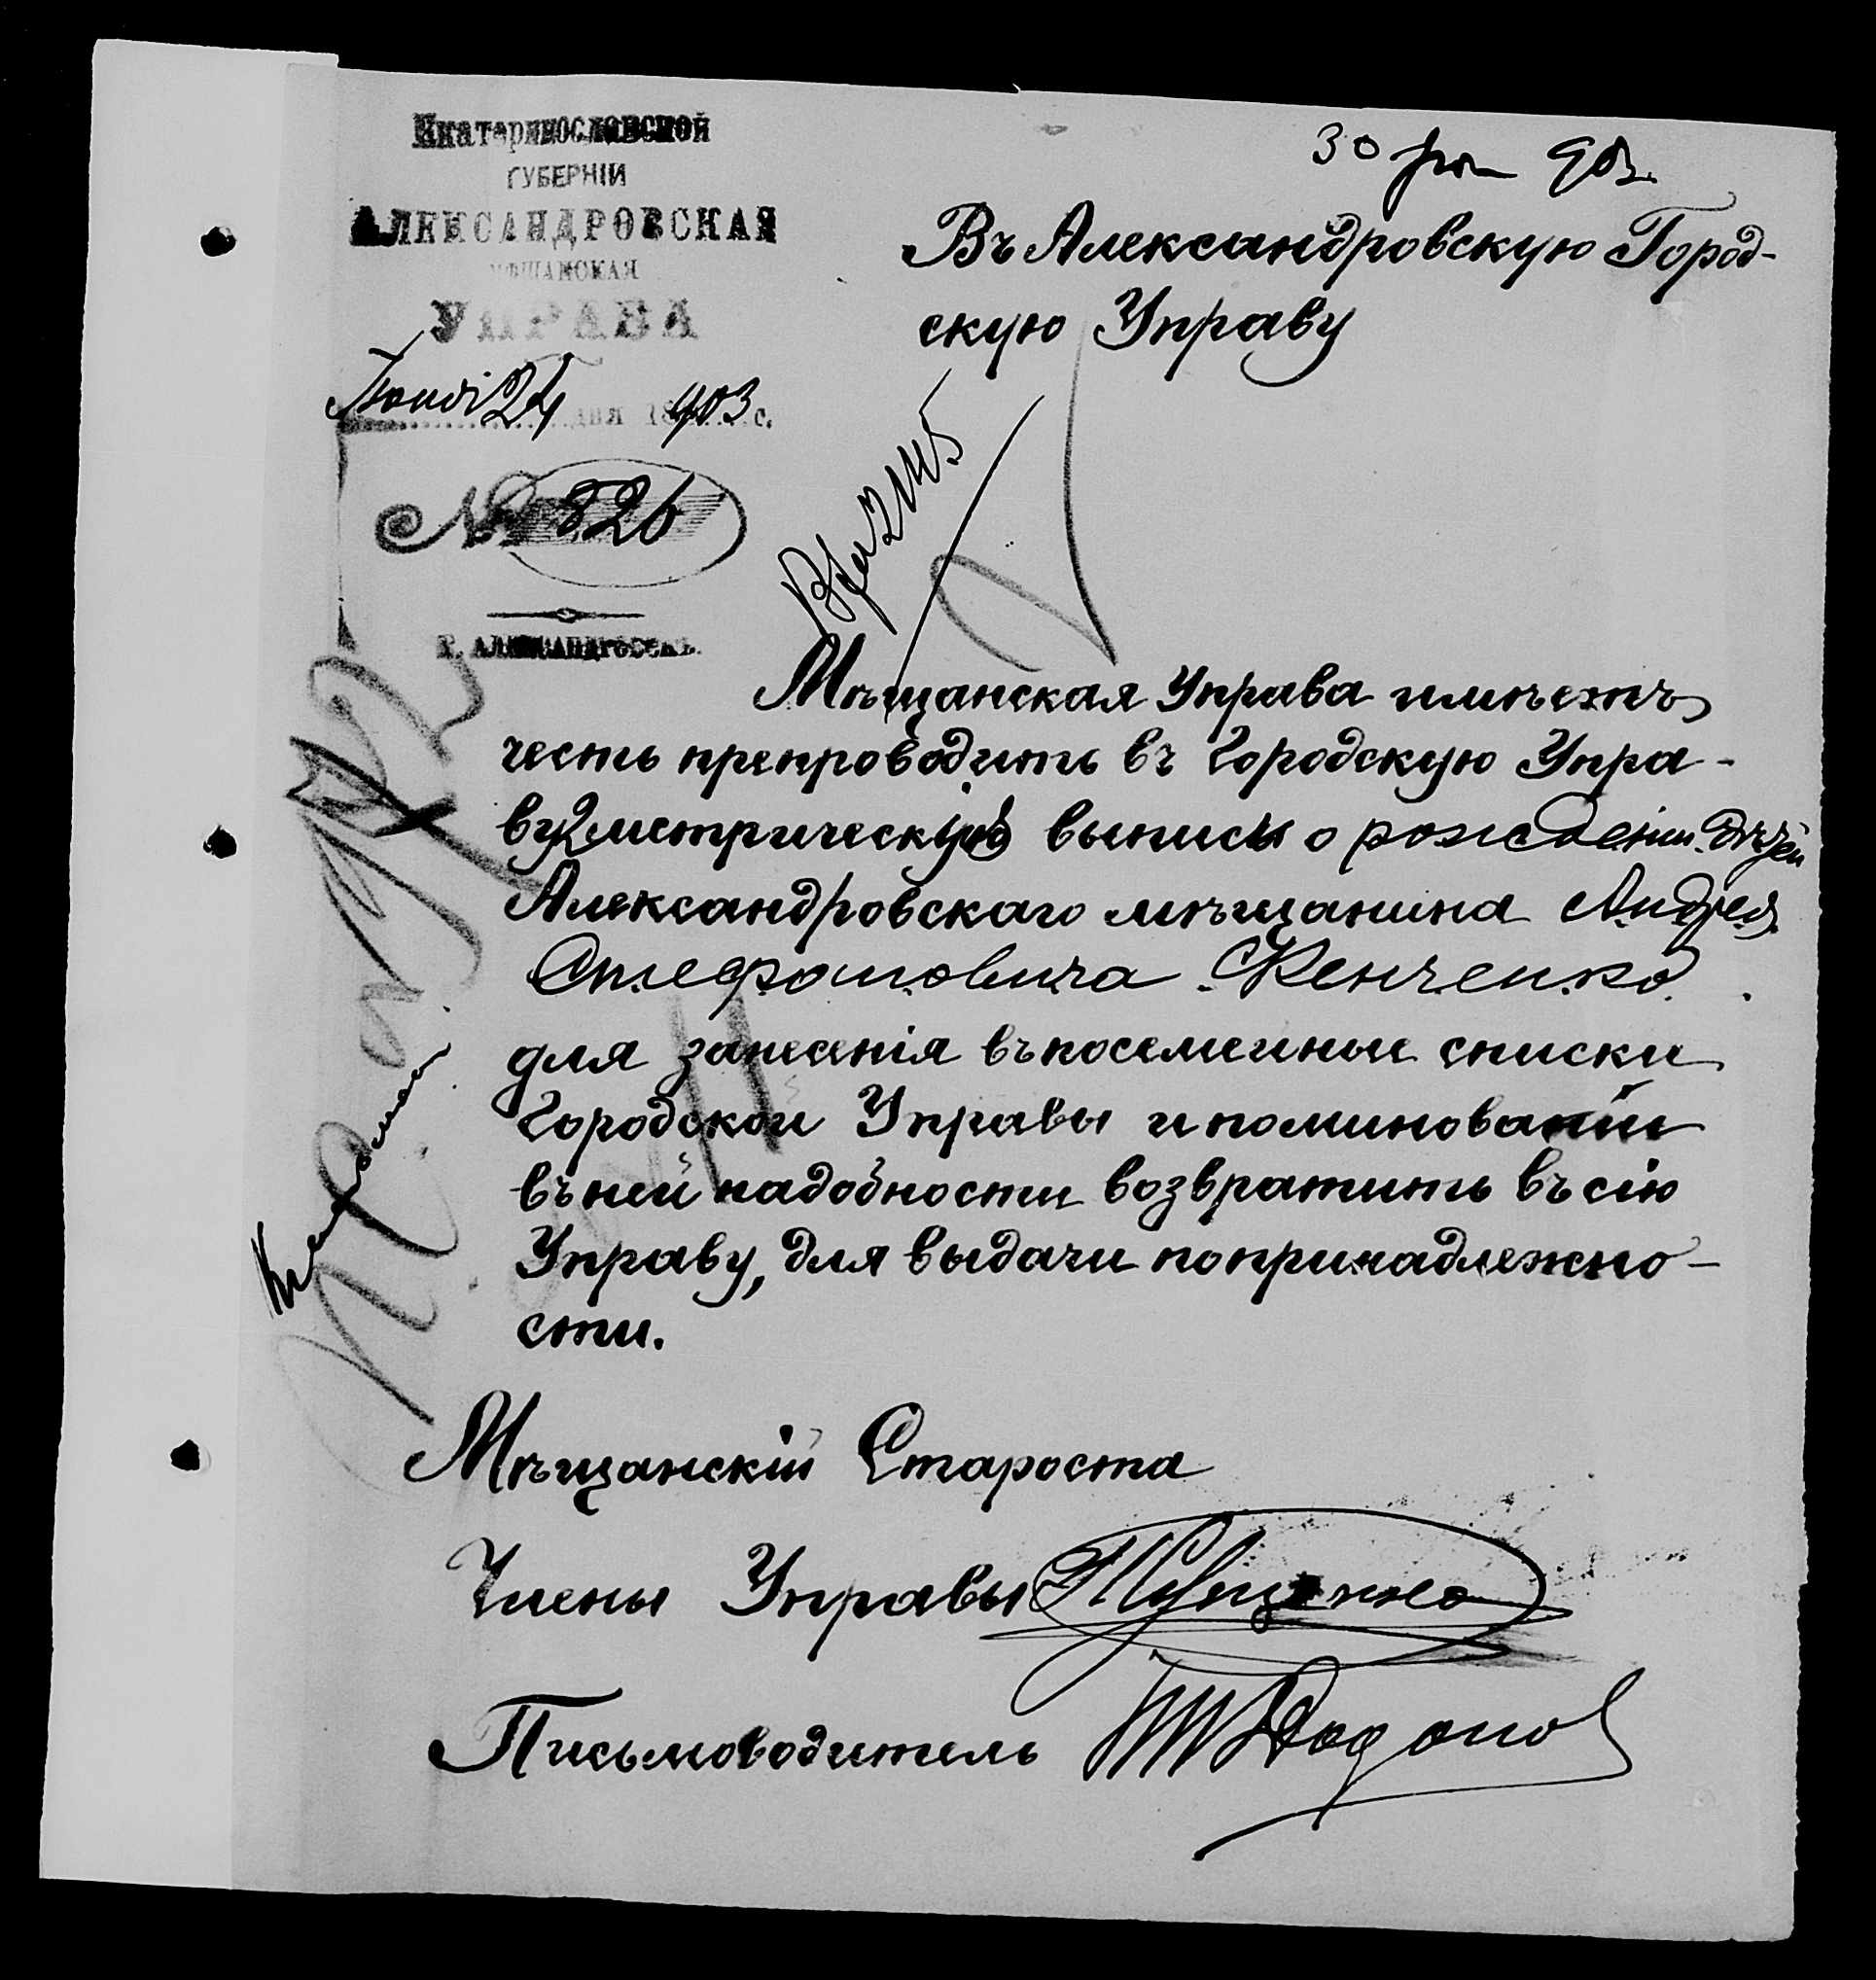 Екатеринославской
ГУБЕРНІИ
АЛЕКСАНДРОВСКАЯ
МѢЩАНСКАЯ
УПРАВА
24 дня 1903 с.
№ 826
Г. АЛЕКСАНДРОВСКЪ.
30 903
Въ Александровскую Город-
скую Управу
Мѣщанская Управа имѣетъ
честь препроводить въ Городскую Упра-
ву 2 метрическия выписи о рожденіи дѣтей
Александровскаго мѣщанина Андрея
Стефановича
для занесенія въ посемейные списки
Городской Управы и поминованіи
въ ней надобности возвратить въ сію
Управу, для выдачи по принадлежно-
сти.
Мѣщанскій Староста
Члены Управы
Письмоводитель Додонов